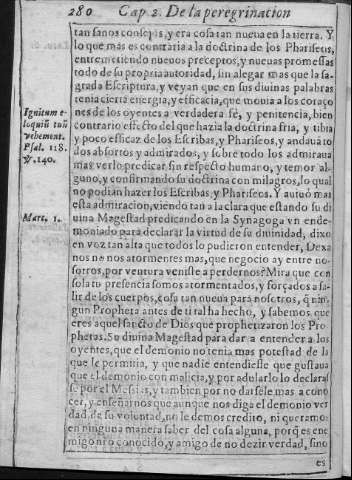 280 Cap. 2. De la peregrinacion
tan sanos consejos, y era cosa tan nueva en la tierra. Y
lo que mas es contraria a la doctrina de los Phariseos,
entremetiendo nueuos preceptos, y nueuas promessas
todo de su propria autoridad, sin alegar mas que la sa-
grada Escriptura, y veyan que en sus diuinas palabras
tenia cierta energia, y efficacia, que mouia a los coraço
Ignitum e-
nes de los oyentes a verdadera fê, y penitencia, bien
loquiũ tuũ
contrario effecto del que hazia la doctrina fria, y tibia
vehement.
y poco efficaz de los Escribas, y Phariseos, y andauã to
Psal. 118.
dos absortos y admirados, y sobre todo les admiraua
℣. 140.
mas verlo predicar sin respecto humano, y temor al-
guno, y confirmando su doctrina con milagros, lo qual
no podian hazer los Escribas, y Phariseos. Y autuô mas
esta admiracion, viendo tan a la clara que estando su di
Marc. 1.
uina Magestad predicando en la Synagoga vn ende-
moniado para declarar la virtud de su diuinidad, dixo
en voz tan alta que todos lo pudieron entender, Dexa
nos ne nos atormentes mas, que negocio ay entre no-
sotros, por ventura veniste a perdernos? Mira que con
sola tu presencia somos atormentados, y forçados a sa-
lir de los cuerpos, cosa tan nueva para nosotros, q̃ nin-
gun Propheta antes de ti tal ha hecho, y sabemos que
eres aquel sancto de Dios que prophetizaron los Pro-
phetas. Su diuina Magestad para dar a entender a los
oyentes, que el demonio no tenia mas potestad de la
que le permitia, y que nadie entendiesse que gustaua
que el demonio con malicia, y por adularlo lo declaras
se por el Mesias, y tambien por no darsele mas a cono
cer, y enseñarnos que aunque nos diga el demonio ver
dad de su voluntad, no le demos credito, ni queramos
en ninguna manera saber del cosa alguna, porq̃ es ene
migo nro conocido, y amigo de no dezir verdad, sino
es